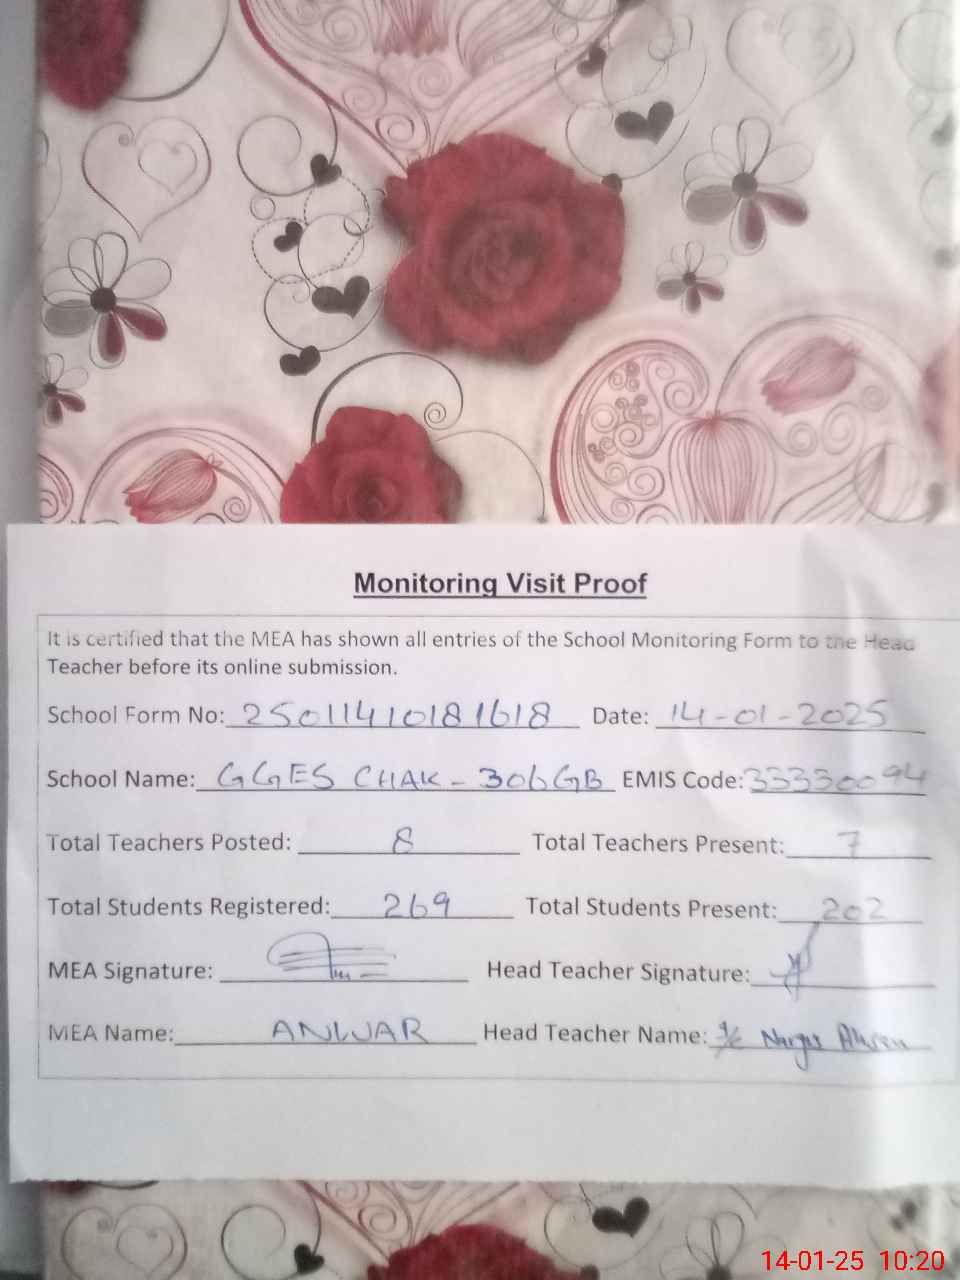 Monitoring Visit Proof
It is certified that the MEA has shown all entries of the School Monitoring Form to the Head
Teacher before its online submission.
School Form No: 25011410181618 Date: 14-01-2025
School Name: GGES CHAK-306GB EMIS Code: 33330094
Total Teachers Posted: 8 Total Teachers Present: 7
Total Students Registered: 269 Total Students Present: 202
MEA Signature: Head Teacher Signature:
MEA Name: ANWAR Head Teacher Name: Narges
14-01-25 10:20